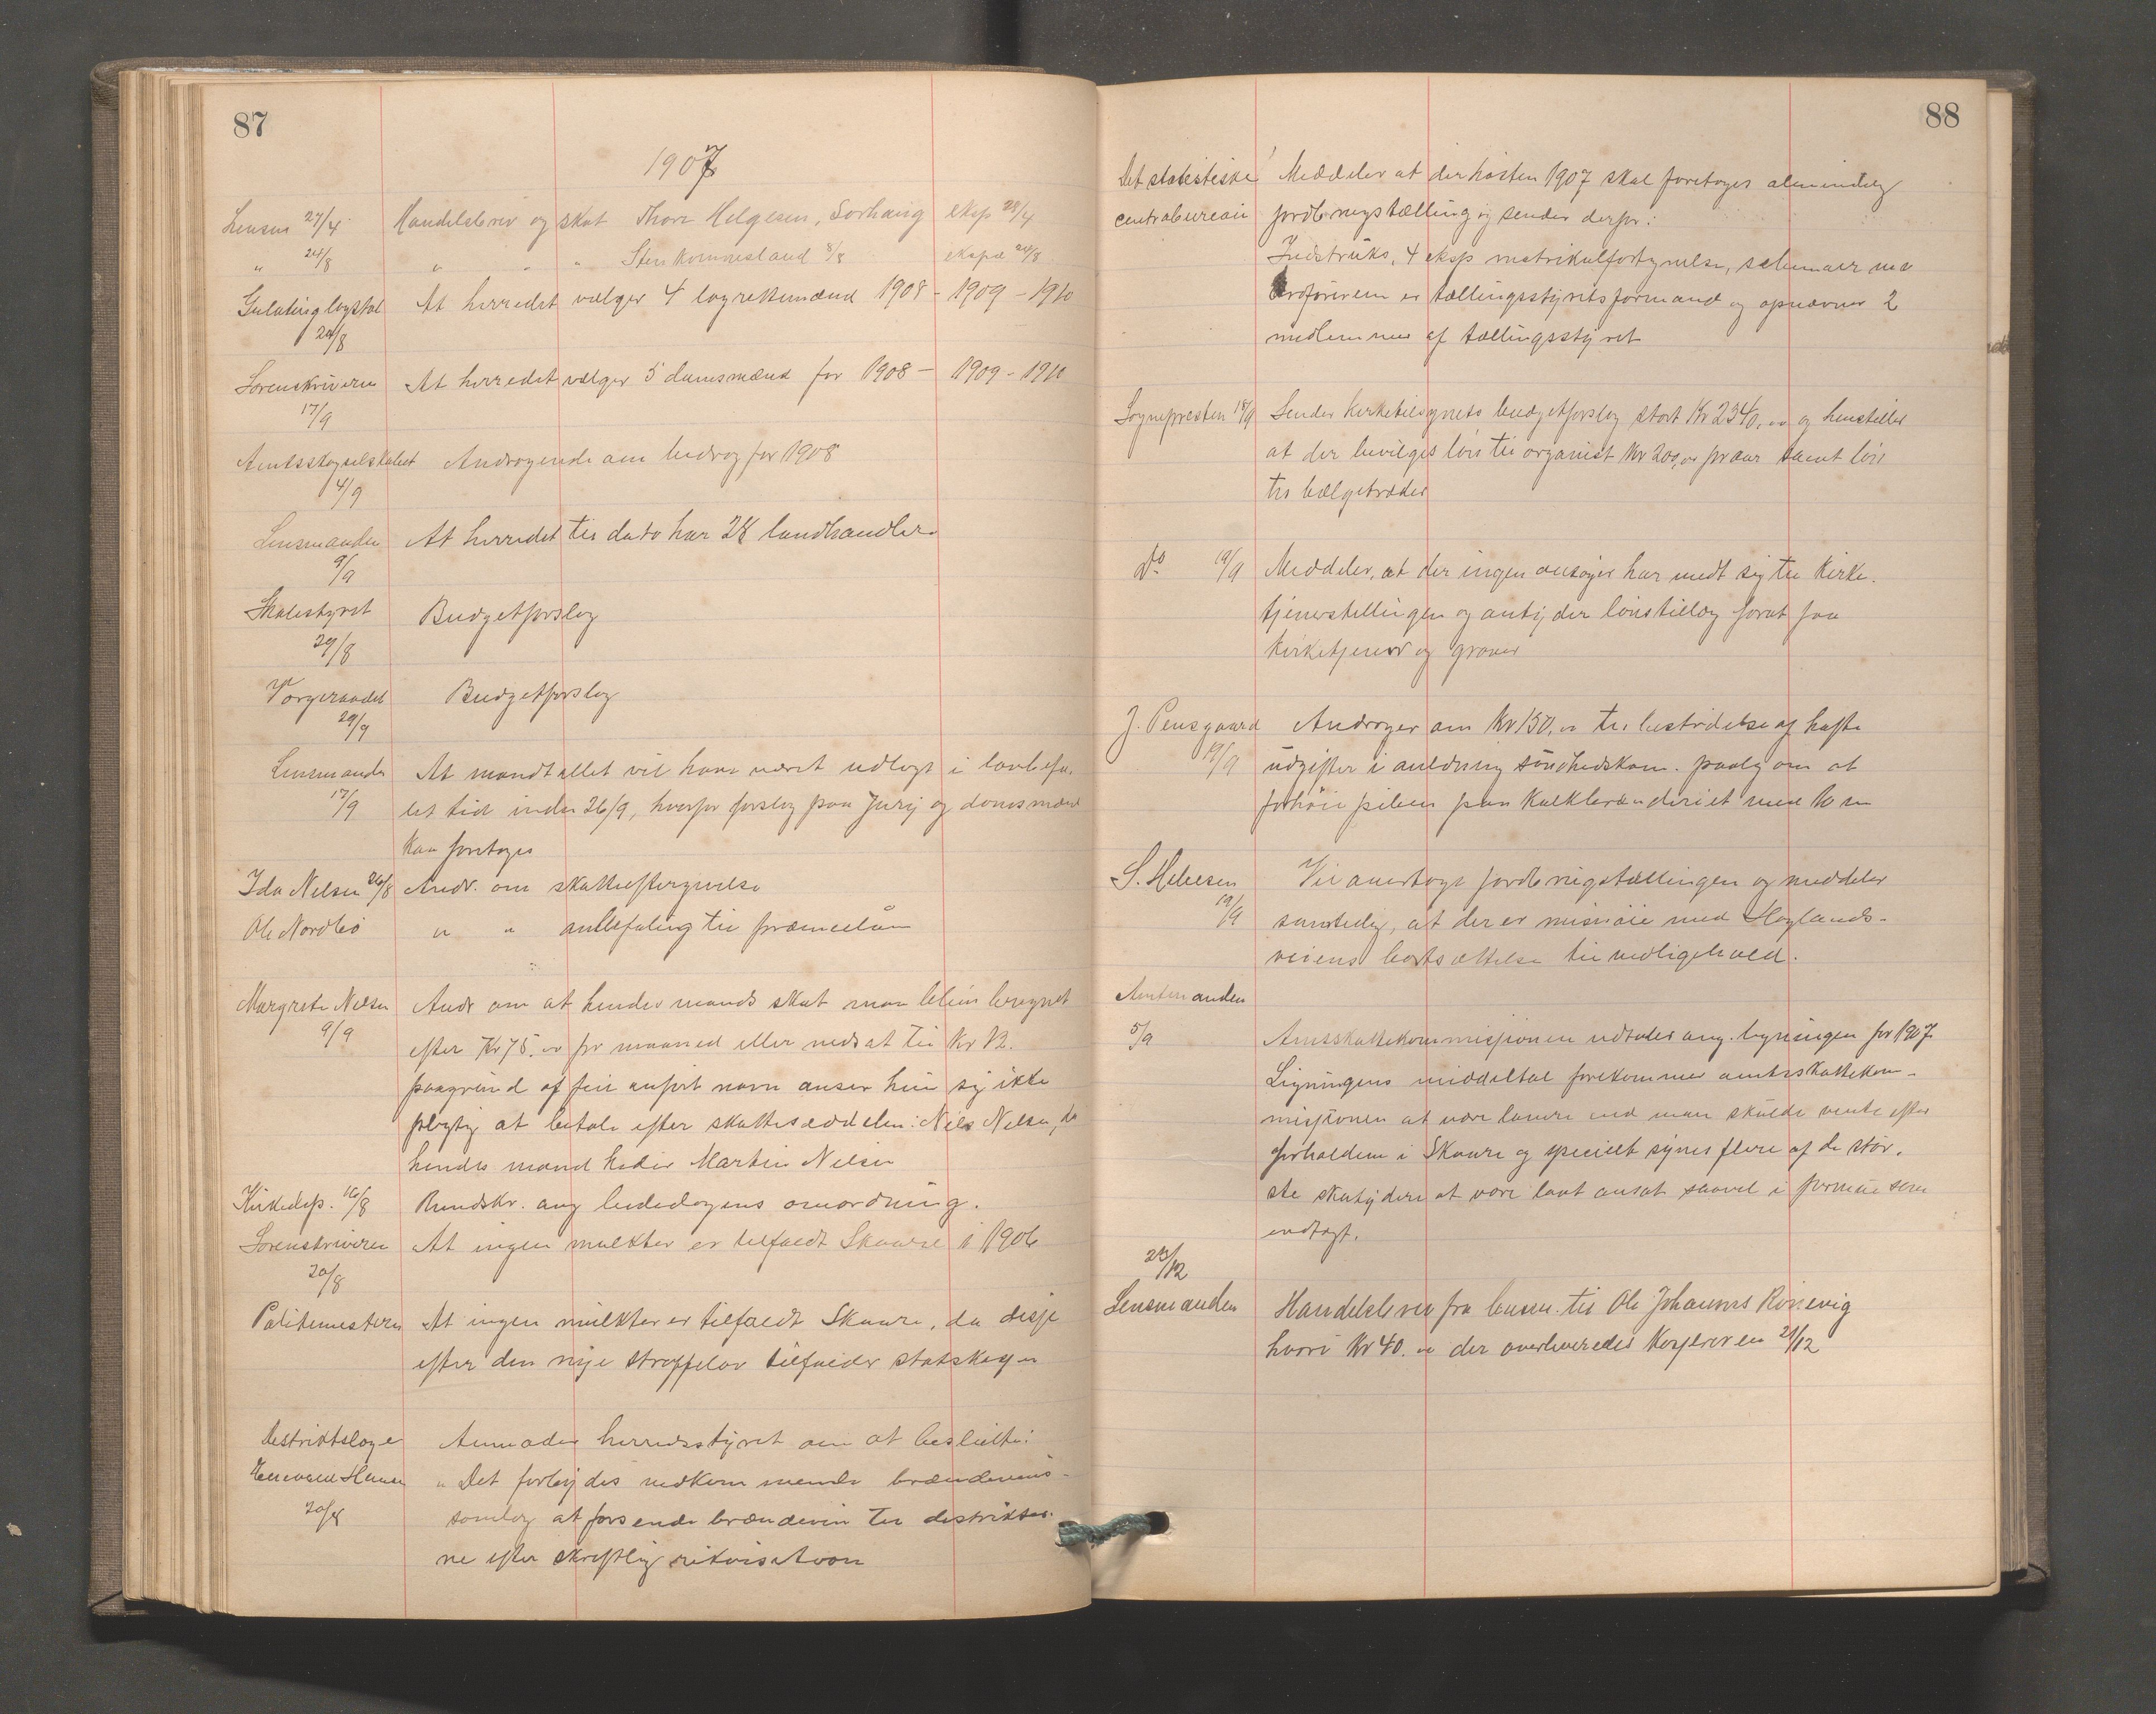 87
1907
Lensm 27/4 Handelsbrev og skat Thore Helgesen, Sørhaug eksp 28/4
" 24/8 " " " Sten Kommesland 8/8 eksped 24/8
Gulating lagstol At herredet vælger 4 lagrettemænd 1908 - 1909 - 1910
24/8
Sorenskriveren At herredet vælger 5 domsmænd for 1908 - 1909 - 1910
17/9
Amtsskogselskabet Andragende om bidrag for 1908
4/9
Lensmanden At herredet til dato har 28 landhandlere
9/9
Skolestyret Budgetforslag
29/8
Værgeraadet Budgetforslag
29/9
Lensmanden At mandtallet vil have været udlagt i lovbefa-
17/9 let tid inden 26/9, hvorfor forslag paa Jury og domsmænd
kan foretages
Ida Nelsen 26/8 Andr. om skatteeftergivelse
Ole Nordbø " " anbefaling til præmielån
Margrete Nelsen Andr om at hendes mands skat maa blive beregnet
9/9 efter Kr 75.oo pr maaned eller nedsat til Kr 12.
paagrund af feil anført navn anser hun sig ikke
pligtig at betale efter skatteseddelen: Nils Nelsen, da
hendes mand heder Martin Nelsen
Kirkedep. 16/8 Rundskr. ang bededagens omordning.
Sorenskriveren At ingen mulkter er tilfaldt Skaare i 1906
20/8
Politimesteren At ingen mulkter er tilfaldt Skaare, da disse
efter den nye straffelov tilfalder statskassen
Distriktslæge Anmoder herredsstyret om at beslutte:
Hansen " Det forbydes vedkommende brændevins-
20/8 samlag at forsende brændevin til distrikter-
ne efter skriftlig rekvisition
88
Det statistiske Meddeler at der høsten 1907 skal foretages almindelig
centralbureau jordbrugstælling og sender derfor:
Instruks, 4 eksp matrikulfortegnelse, schemaer m.v
Ordføreren er tællingsstyrets formand og opnævner 2
medlemmer af tællingsstyret
Sognepresten 18/9 Sender kirketilsynets budgetforslag stort Kr 2340,oo og henstiller
at der bevilges løn til organist Kr 200,oo pr aar samt løn
til bælgetræder
Do 19/9 Meddeler, at der ingen ansøger har meldt sig til kirke-
tjenerstillingen og antyder lønstillæg forat faa
kirketjener og graver
J. Pensgaard Andrager om Kr 150,oo til bestridelse af hafte
19/9 udgifter i anledning sundhedskom. paalæg om at
forhøie piben paa Kalkbrænderiet med 10 m
S. Helvesen Vil anertage jordbrugstællingen og meddeler
19/9 samtidig, at der er misnøie med Høglands-
veiens bortsættelse til vedligehold.
Amtmanden
5/9 Amtsskattekommissionen udtaler ang. ligningen for 1907
Ligningens middeltal forekommer amtsskattekom-
missionen at være lavere end man skulde vente efter
forholdene i Skaare og specielt synes flere af de stør-
ste skatydere at være lavt ansat saavel i formue som
indtægt.
23/12
Lensmanden Handelsbrev fra lensm. til Ole Johannes Rønnevig
hvori Kr 40.oo der overleveredes Kassereren 21/12